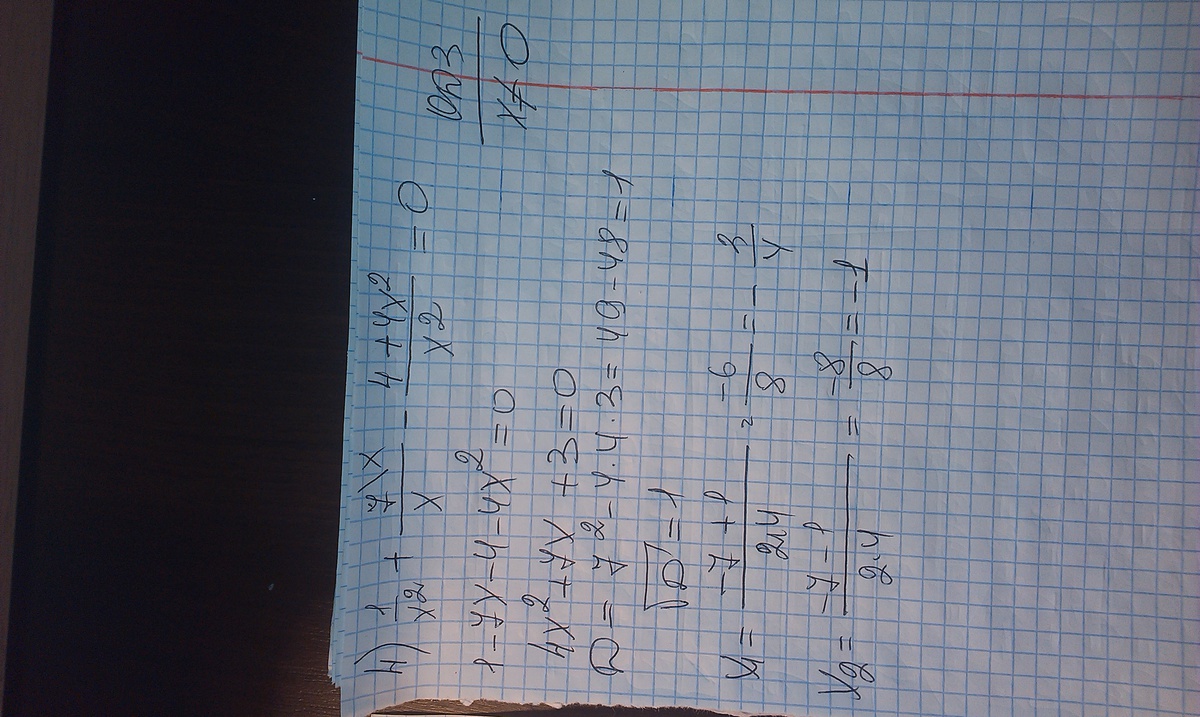 н) 1/x² + 7\x/x - 4+4x²/x² = 0
ОДЗ
x≠0
1-7x-4-4x²=0
4x²+7x+3=0
D = 7²-4·4·3=49-48=1
√D=1
x₁= -7+1/2·4 = -6/8 = - 3/4
x₂= -7-1/2·4 = -8/8 = -1